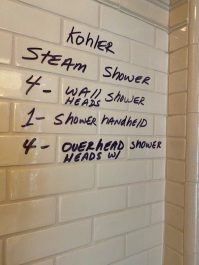 Kohler
STEAM SHOWER
4- WALL SHOWER
HEADS
1- SHOWER HANDHELD
4- OVERHEAD SHOWER
HEADS W/